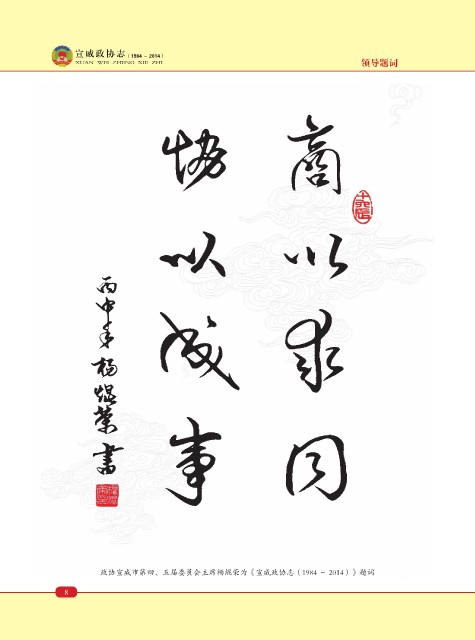 宣威政协志（1984 - 2014）
XUAN WEI ZHENG XIE ZHI
领导题词
商以求同
协以成事
丙申年 杨焜荣 书
政协宣威市第四、五届委员会主席杨焜荣为《宣威政协志（1984 - 2014）》题词
8